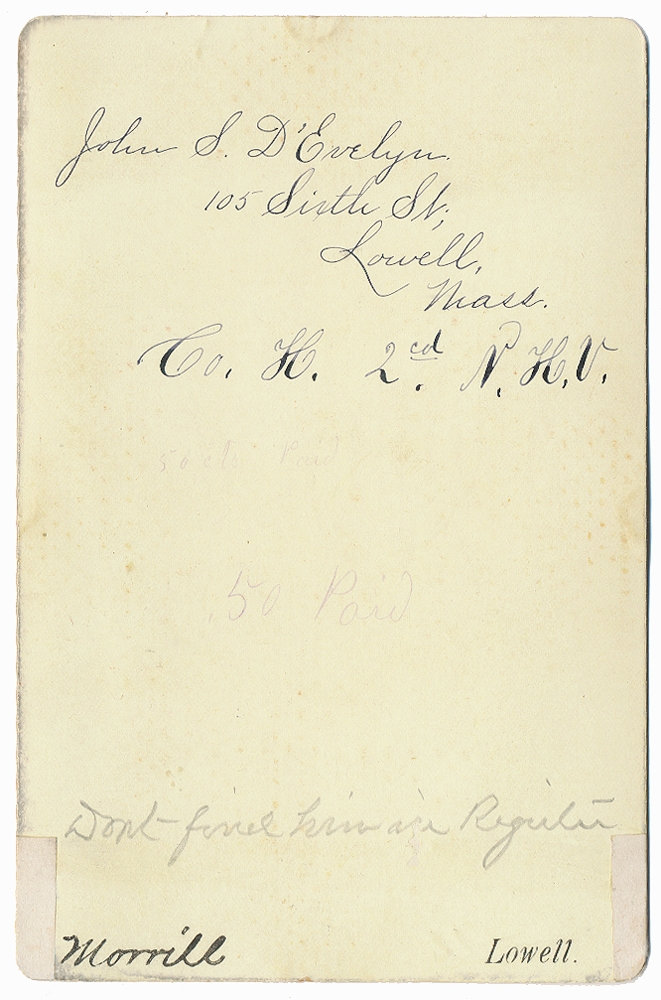 John S. D'Evelyn.
105 Sixth St,
Lowell,
Mass.
Co. H. 2cd. N. H. V.
50 cts Paid
.50 Paid
Dont find him in Register
Morrill Lowell.